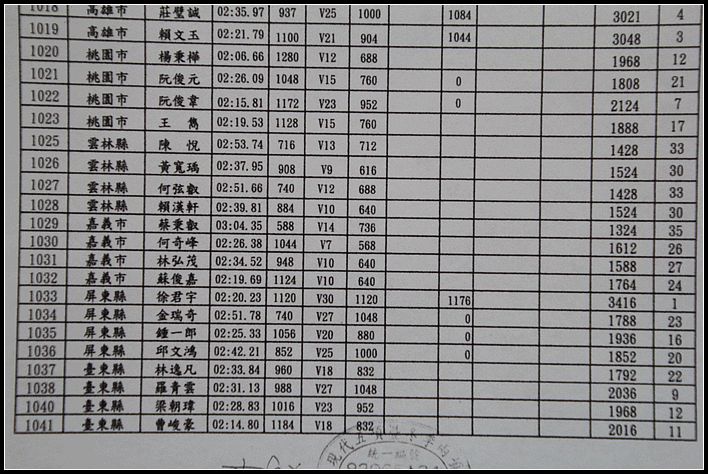 1018 高雄市 莊璧誠 02:35.97 937 V25 1000 1084 3021 4
1019 高雄市 賴文玉 02:21.79 1100 V21 904 1044 3048 3
1020 桃園市 楊秉樺 02:06.66 1280 V12 688 1968 12
1021 桃園市 阮俊元 02:26.09 1048 V15 760 0 1808 21
1022 桃園市 阮俊韋 02:15.81 1172 V23 952 0 2124 7
1023 桃園市 王 雋 02:19.53 1128 V15 760 1888 17
1025 雲林縣 陳 悅 02:53.74 716 V13 712 1428 33
1026 雲林縣 黃寬瑀 02:37.95 908 V9 616 1524 30
1027 雲林縣 何弦叡 02:51.66 740 V12 688 1428 33
1028 雲林縣 賴漢軒 02:39.81 884 V10 640 1524 30
1029 嘉義市 蔡秉叡 03:04.35 588 V14 736 1324 35
1030 嘉義市 何奇峰 02:26.38 1044 V7 568 1612 26
1031 嘉義市 林弘茂 02:34.52 948 V10 640 1588 27
1032 嘉義市 蘇俊嘉 02:19.69 1124 V10 640 1764 24
1033 屏東縣 徐君宇 02:20.23 1120 V30 1120 1176 3416 1
1034 屏東縣 金瑞奇 02:51.78 740 V27 1048 0 1788 23
1035 屏東縣 鍾一郎 02:25.33 1056 V20 880 0 1936 16
1036 屏東縣 邱文鴻 02:42.21 852 V25 1000 0 1852 20
1037 臺東縣 林逸凡 02:33.84 960 V18 832 1792 22
1038 臺東縣 羅青雲 02:31.13 988 V27 1048 2036 9
1040 臺東縣 梁朝瑋 02:28.83 1016 V23 952 1968 12
1041 臺東縣 曹峻豪 02:14.80 1184 V18 832 2016 11
現代五項
統一編號